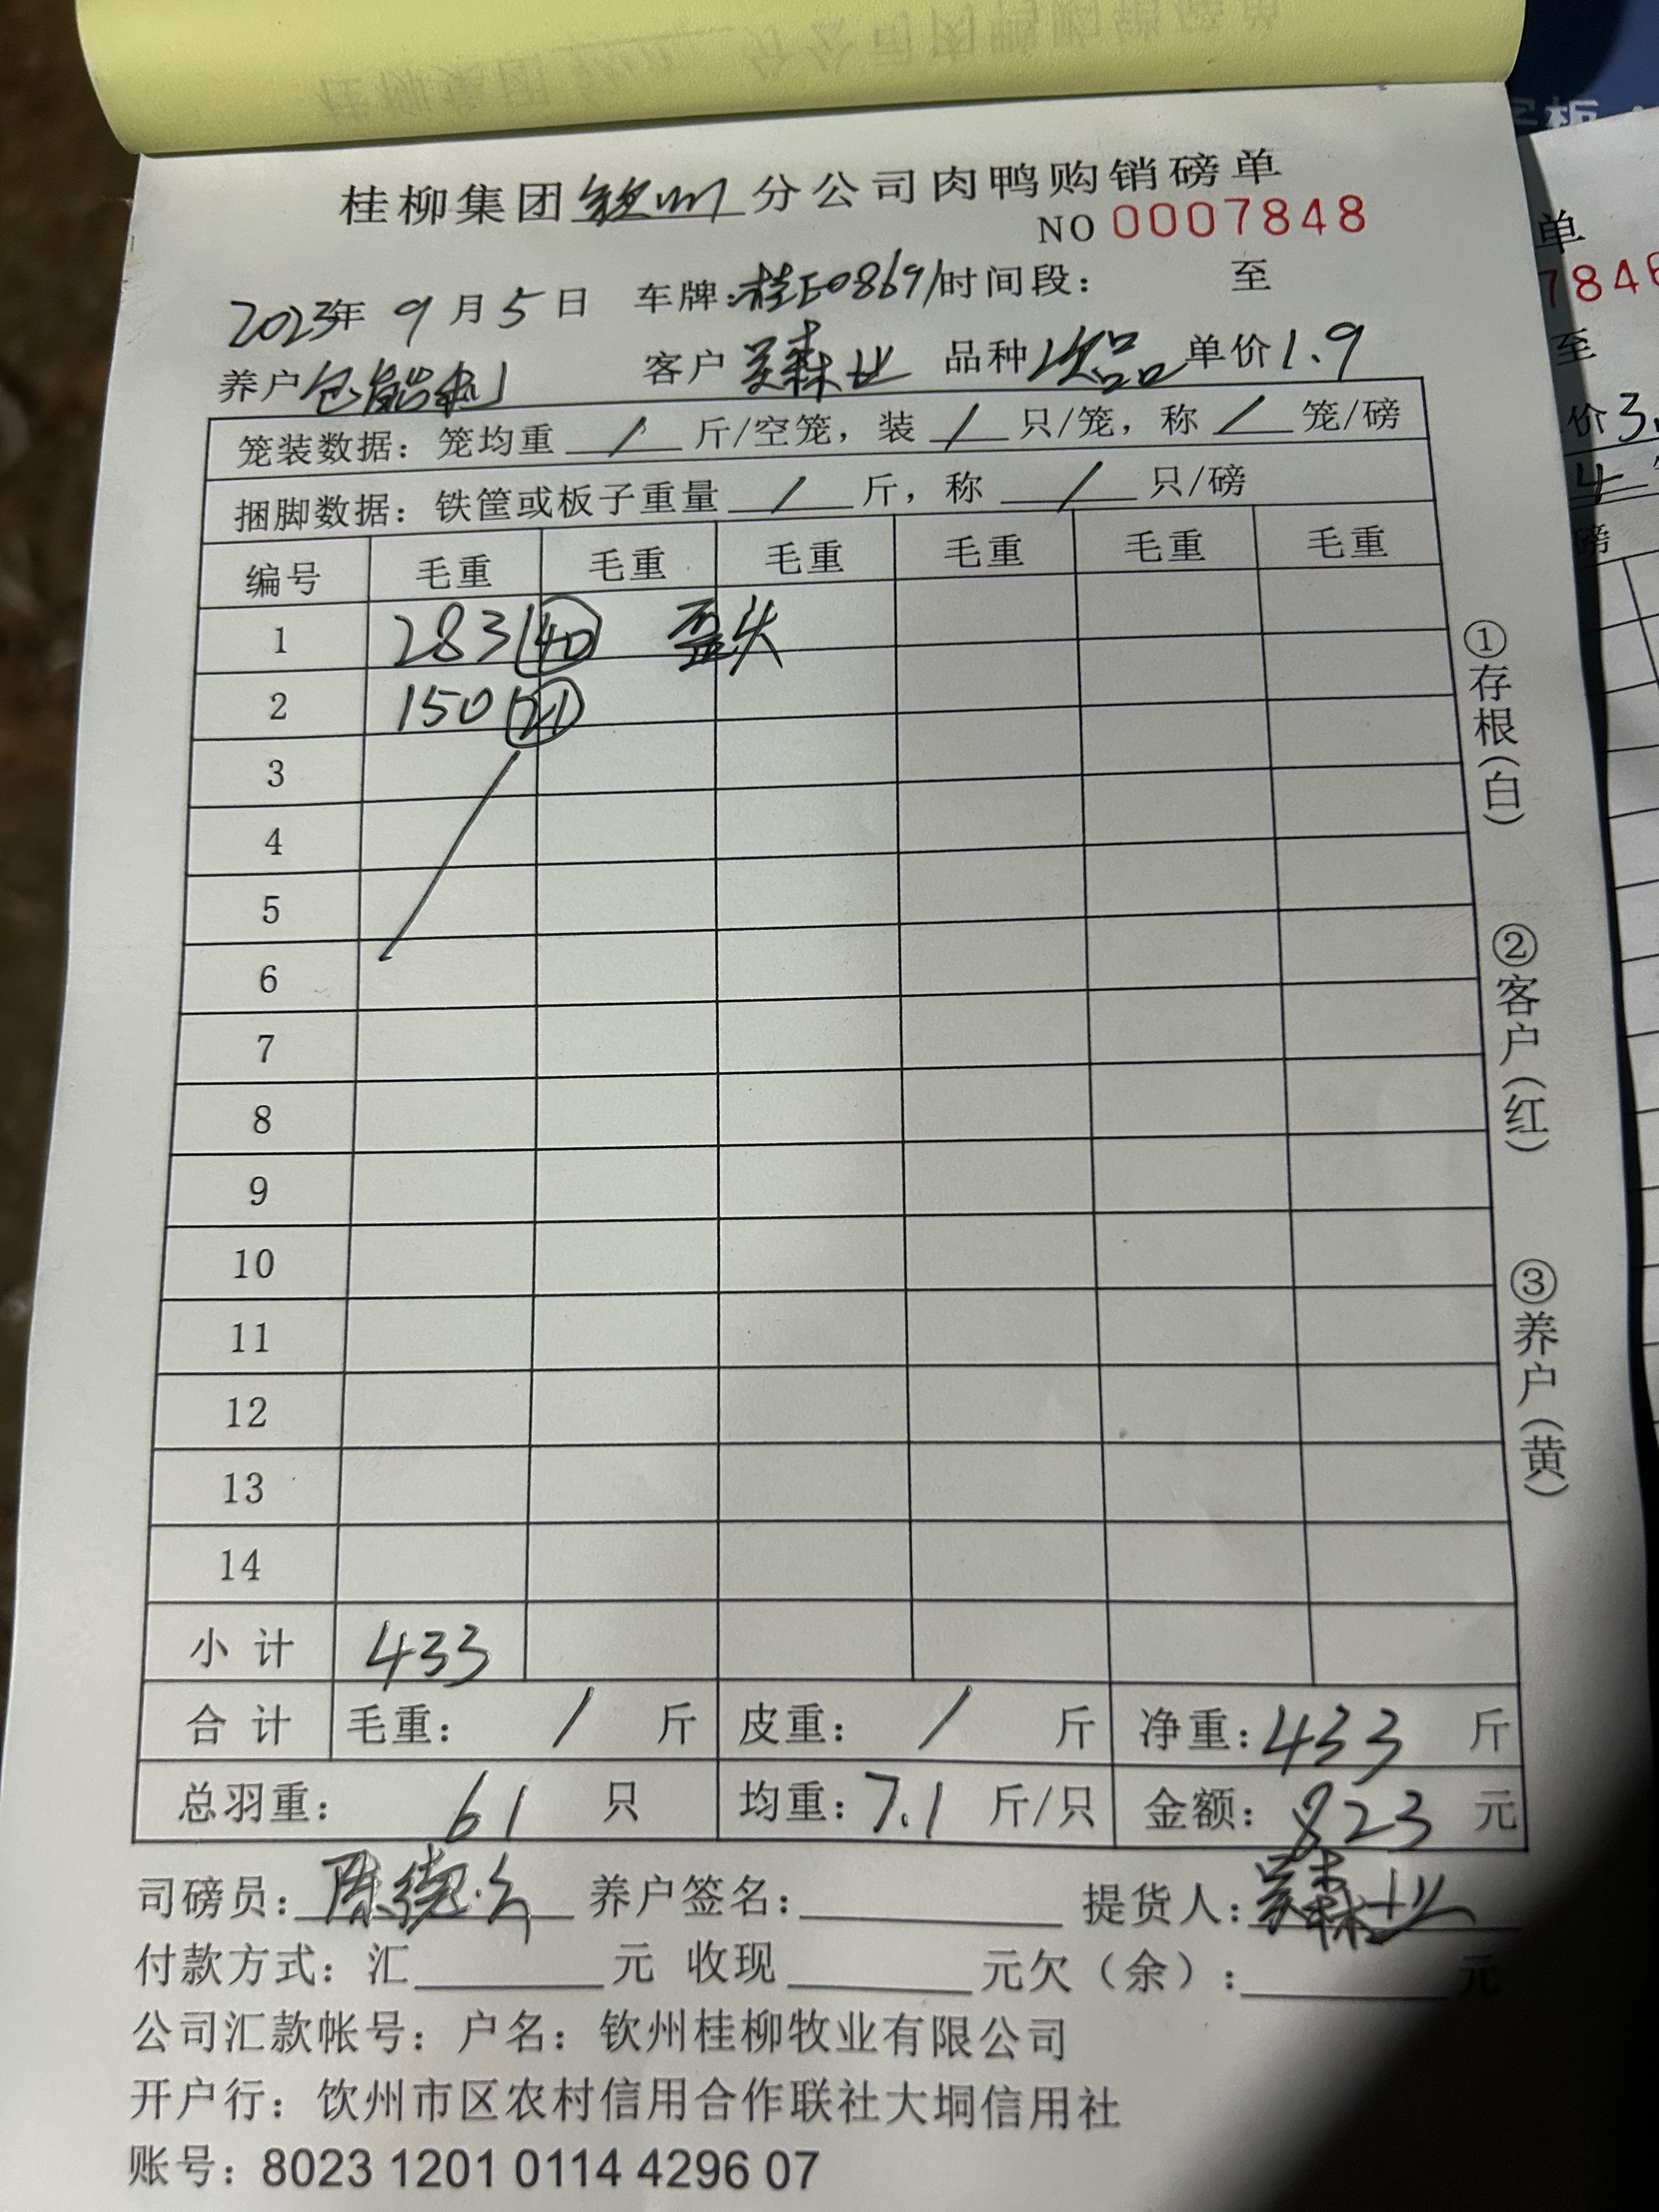 桂柳集团钦州分公司肉鸭购销磅单
NO 0007848
2023年9月5日 车牌:桂E08691时间段: 至
养户 客户 吴森业 品种 次品 单价1.9
笼装数据：笼均重 / 斤/空笼，装 / 只/笼，称 / 笼/磅
捆脚数据：铁筐或板子重量 / 斤，称 / 只/磅
编号 毛重 毛重 毛重 毛重 毛重 毛重
1 283(40) 歪头
2 150(21)
3
4
5
6
7
8
9
10
11
12
13
14
小计 433
合计 毛重： / 斤 皮重： / 斤 净重：433 斤
总羽重： 61 只 均重：7.1 斤/只 金额：823 元
司磅员： 养户签名： 提货人：吴森业
付款方式：汇 元 收现 元欠（余）： 元
公司汇款帐号：户名：钦州桂柳牧业有限公司
开户行：钦州市区农村信用合作联社大垌信用社
账号：8023 1201 0114 4296 07
①存根(白)
②客户(红)
③养户(黄)
单
至
价3.
4
磅